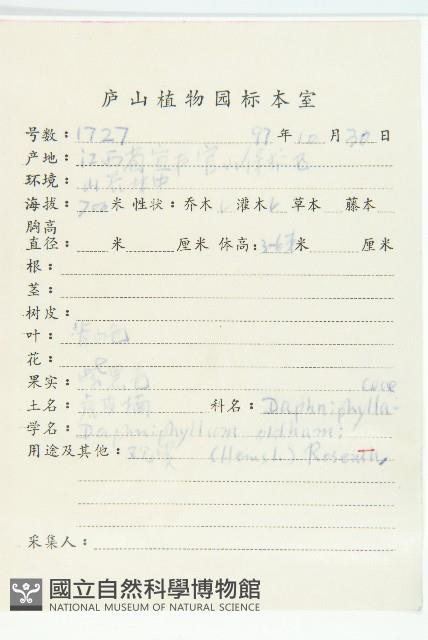 庐山植物园标本室
号数：1727 97年10月30日
产地：江西省宜丰官山保护区
环境：山谷林中
海拔：700米 性状：乔木 灌木 草本 藤本
胸高
直径： 米 厘米 体高：3-6米 厘米
根：
茎：
树皮：
叶：
花：
果实：紫黑色
ceae
土名： 科名：Daphniphylla-
学名：Daphniphyllum oldhami
用途及其他： (Hemsl.) Rosenth.
采集人：
國立自然科學博物館
NATIONAL MUSEUM OF NATURAL SCIENCE